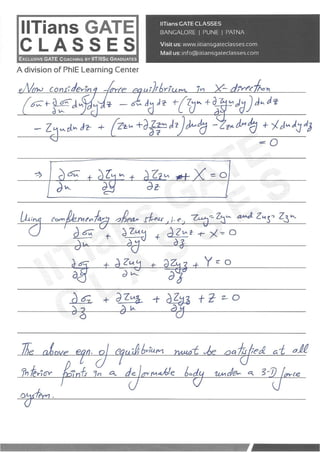 IITians GATE
CLASSES
EXCLUSIVE GATE COACHING BY IIT/IISc GRADUATES
A division of PhIE Learning Center
IITians GATE CLASSES
BANGALORE | PUNE | PATNA
Visit us: www.iitiansgateclasses.com
Mail us: info@iitiansgateclasses.com
Now considering force equilibrium in X- direction
(σx + ∂σx/∂x dx) dy dz - σx dy dz + (τyx + ∂τyx/∂y dy) dx dz
- τyx dx dz + (τzx + ∂τzx/∂z dz) dx dy - τzx dx dy + X dx dy dz
= 0
⇒ ∂σx/∂x + ∂τyx/∂y + ∂τzx/∂z + X = 0
Using complementary shear stress, i.e., τxy = τyx and τxz = τzx
∂σx/∂x + ∂τxy/∂y + ∂τxz/∂z + X = 0
∂σy/∂y + ∂τxy/∂x + ∂τyz/∂z + Y = 0
∂σz/∂z + ∂τxz/∂x + ∂τyz/∂y + Z = 0
The above eqn. of equilibrium must be satisfied at all
interior points in a deformable body under a 3-D force
system.
IITIANS GATE
CLASSES